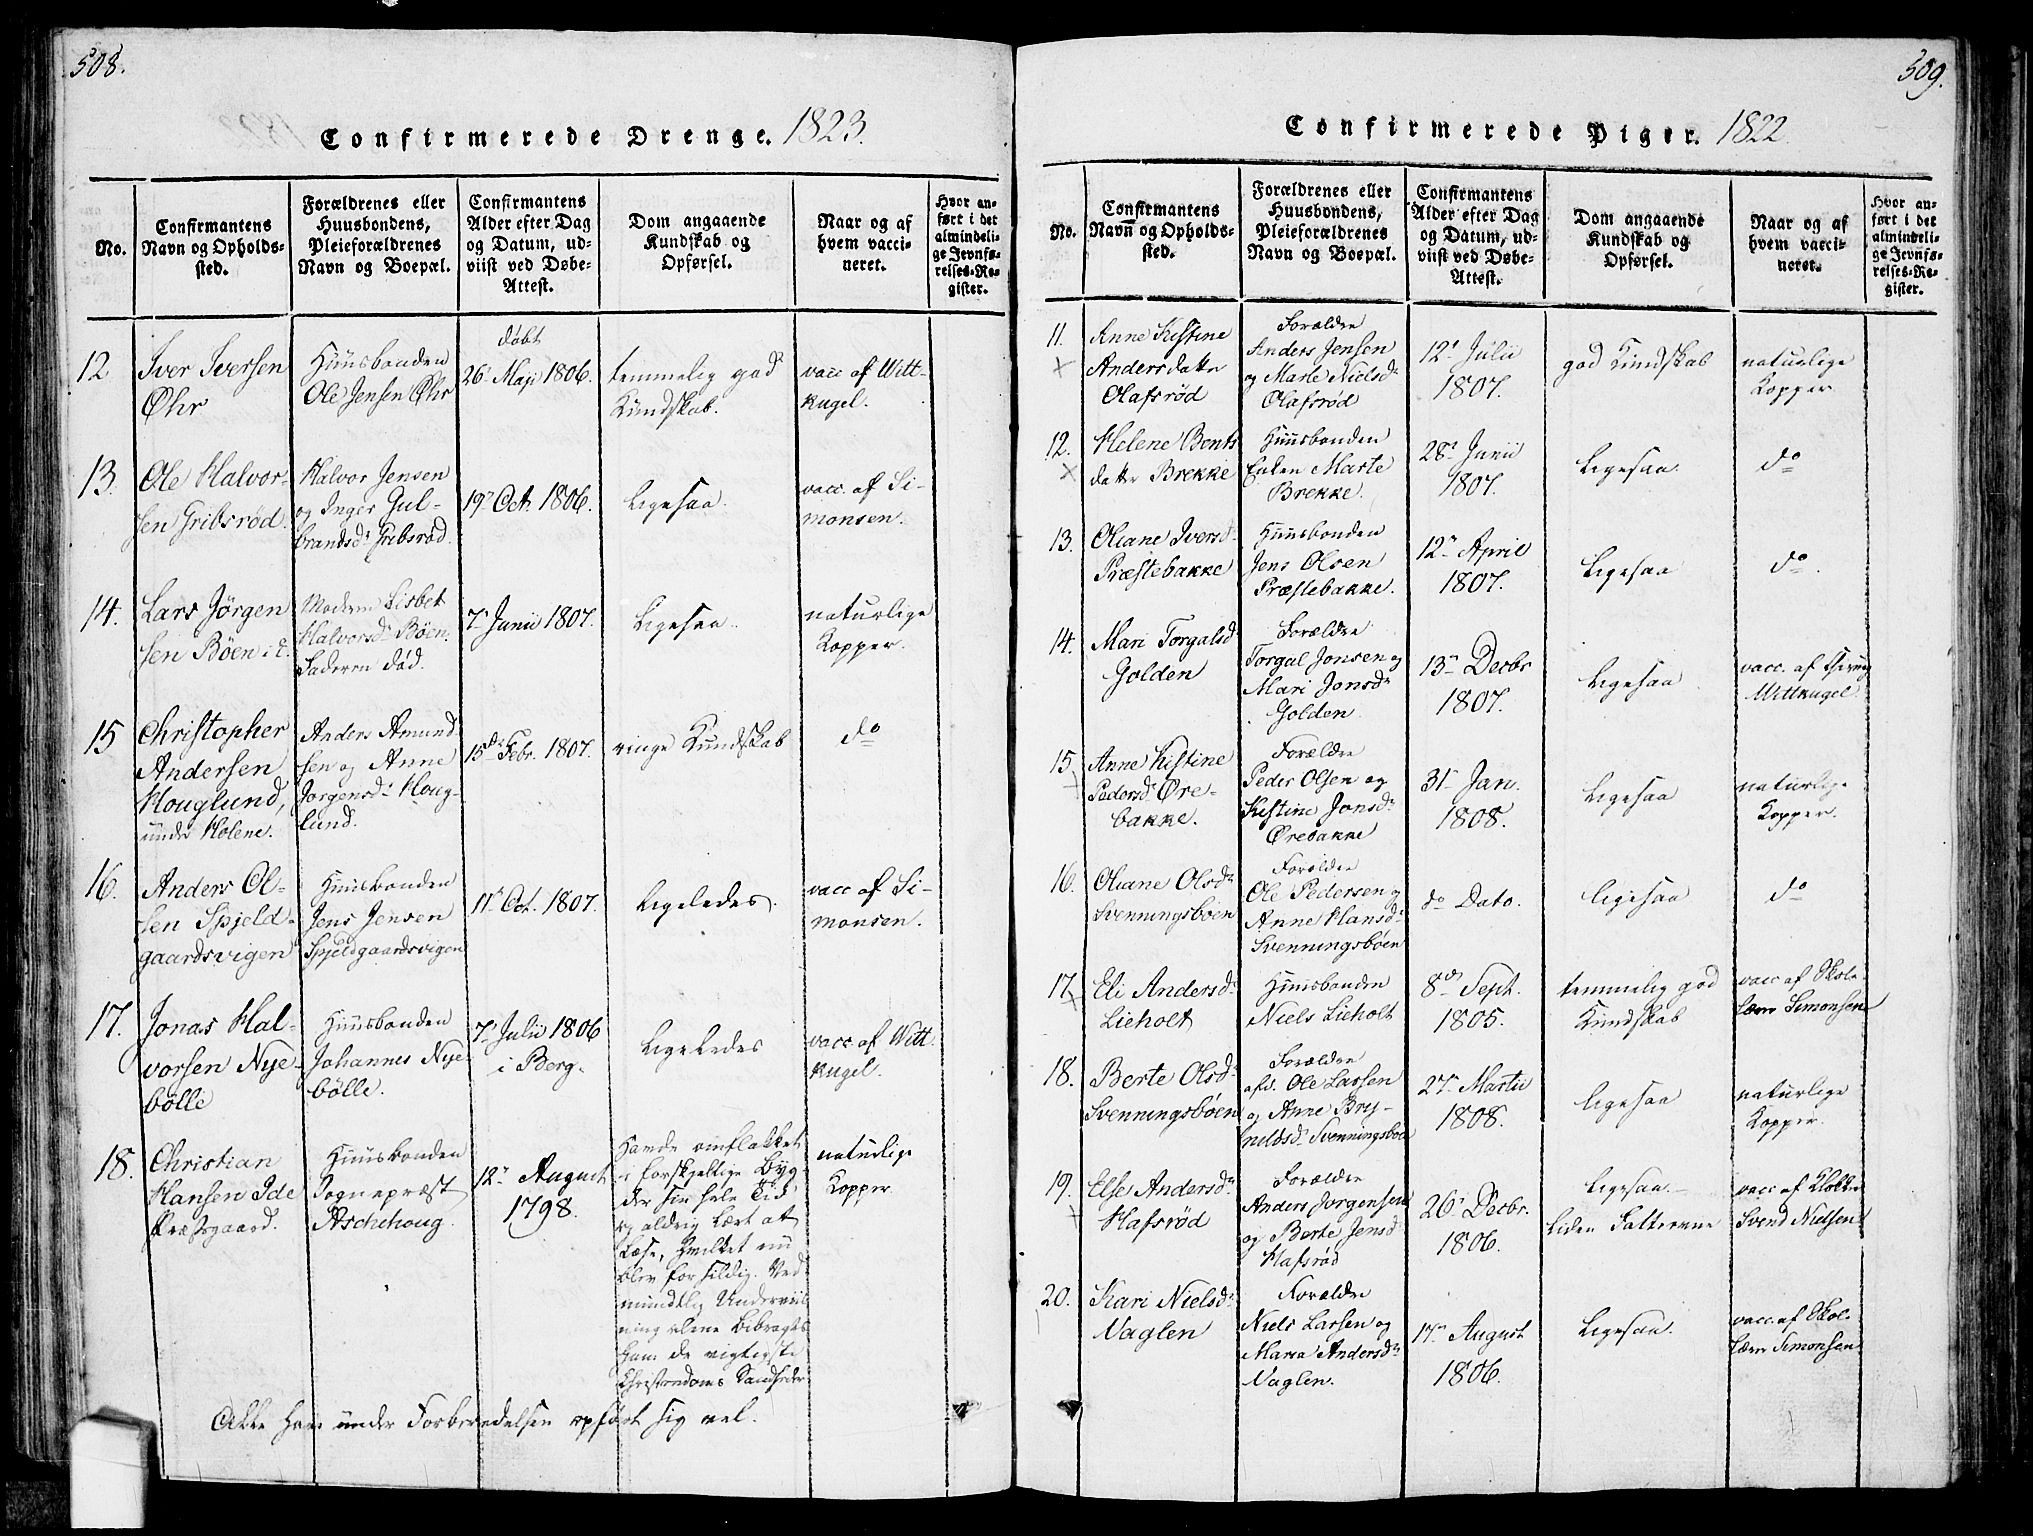 508.
Confirmerede Drenge. 1823.
No.
Confirmantens
Navn og Opholds-
sted.
Forældrenes eller
Huusbondens,
Pleieforældrenes
Navn og Boepæl.
Confirmantens
Alder efter Dag
og Datum, ud-
viist ved Døbe-
Attest.
Dom angaaende
Kundskab og
Opførsel.
Naar og af
hvem vacci-
neret.
Hvor an-
ført i det
almindeli-
ge Jevnfø-
relses-Re-
gister.
12
Iver Iversen
Øhr
Huusbonden
Ole Jensen Øhr
døbt
26 Maji 1806.
temmelig god
Kundskab.
vacc af Witt-
kugel.
13.
Ole Halvor-
sen Gribsrød.
Halvor Jensen
og Inger Gul-
brandsdr Gribsrød.
19 Oct. 1806.
Ligesaa.
vacc. af Si-
monsen.
14.
Lars Jörgen
sen Böen i E.
Moderen Lisbet
Halvorsdr Böen.
Faderen död.
7 Junii 1807.
Ligesaa.
naturlige
Kopper.
15
Christopher
Andersen
Houglund,
under Holene.
Anders Amund
sen og Anne
Jorgensdr Houg-
lund.
15de Febr. 1807.
ringe Kundskab
do
16.
Anders Ol-
sen Spjeld-
gaardsvigen
Huusbonden
Jens Jensen
Spjeldgaardsvigen
11 Oct. 1807.
Ligeledes.
vacc af Si-
monsen.
17.
Jonas Hal-
vorsen Nye-
bölle
Huusbonden
Johannes Nye-
bölle.
7 Julii 1806
i Berg.
Ligeledes
vacc af Witt
kugel.
18.
Christian
Hansen Ide
Præstgaard.
Huusbonden
Sognepræst
Aschehoug.
12 August
1798.
Havde omflakket
i forskjellige Byg-
der sin hele Tid
og aldrig lært at
læse, hvilket nu
blev for sildig. Ved
mundtlig Underviis
ning alene bibragtes
ham de vigtigste
Christendoms Sandheder
naturlige
Kopper
Alle have under Forberedelsen opført sig vel.
509.
Confirmerede Piger. 1822.
No.
Confirmantens
Navn og Opholds-
sted.
Forældrenes eller
Huusbondens,
Pleieforældrenes
Navn og Boepæl.
Confirmantens
Alder efter Dag
og Datum, ud-
viist ved Døbe-
Attest.
Dom angaaende
Kundskab og
Opførsel.
Naar og af
hvem vacci-
neret.
Hvor an-
ført i det
almindeli-
ge Jevnfø-
relses-Re-
gister.
11.
Anne Kistine
Andersdatter
Olafsrød
Forældre
Anders Jensen
og Marte Nielsdr
Olafsrød
12 Julii
1807.
god Kundskab
naturlige
Kopper
12.
Helene Bents
datter Brekke
Huusbonden
Enken Marte
Brekke.
28 Junii
1807.
Ligesaa.
do
13.
Oliane Iversdr
Præstebakke
Huusbonden
Jens Olsen
Præstebakke.
12 April
1807.
Ligesaa
do.
14.
Mari Torgalsdr
Golden
Forældre
Torgal Jonsen og
Mari Jonsdr
Golden
13 Decbr
1807.
Ligesaa
vacc. af
Wittkugel
15
Anne Kistine
Pedersdr Øre-
bakke.
Forældre
Peder Olsen og
Kistine Jonsdr
Ørebakke
31 Jan.
1808.
Ligesaa
naturlige
Kopper.
16.
Oliane Olsdr
Svenningsböen
Forældre
Ole Pedersen og
Anne Hansdr
Svenningsböen
do Dato.
ligesaa
do
17.
Eli Andersdr
Lieholt
Huusbonden
Niels Lieholt
8de Sept.
1805.
temmelig god
Kundskab
vacc af Skole-
lærer Simonsen
18.
Berte Olsdr
Svenningsböen
Forældre
afd. Ole Larsen
og Anne Bry-
nildsdr Svenningsböen
27 Martii
1808.
ligesaa
naturlige
Kopper.
19.
Else Andersdr
Hafsrød
Forældre
Anders Jorgensen
og Berte Jensd
Hafsrød
26 Decbr.
1806.
Ligesaa.
liden Fatteevne
vacc af Klokker
Svend Nielsen
20.
Kari Nielsdr
Naglen
Forældre
Niels Larsen og
Maria Andersdr
Naglen.
17 August
1806.
Ligesaa.
vacc. af Skol-
lærer Simonsen